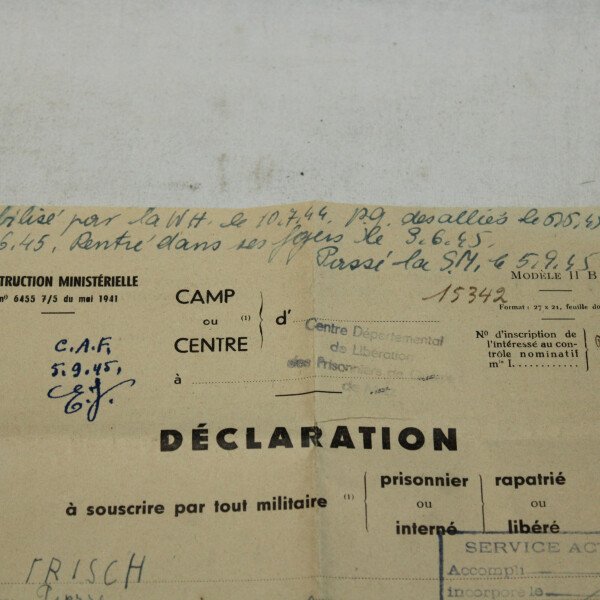 bilisé par la WH. le 10.7.44. p.g. des alliés le
6.45. Rentré dans ses foyers le 9.6.45.
Passé la S.M. le 5.9.45
TRUCTION MINISTÉRIELLE
nº 6455 7/5 du mai 1941
MODÈLE 11 B
15342
Format : 27 x 21, feuille do
CAMP
ou (1) d'
CENTRE
à
Centre Départemental
de Libération
des Prisonniers de Guerre
de
Nº d'inscription de
l'intéressé au con-
trôle nominatif
mle I.
C.A.F.
5.9.45.
DÉCLARATION
à souscrire par tout militaire (1)
prisonnier
ou
interné
rapatrié
ou
libéré
SERVICE AC
Accompli
incorporé le
TRISCH